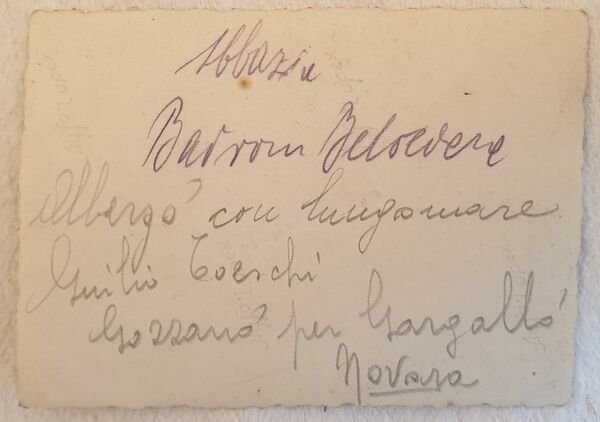 Abbazia
Badrom Belvedere
Albergo con lungomare
Giulio Toeschi
Gozzano per Gargallo
Novara